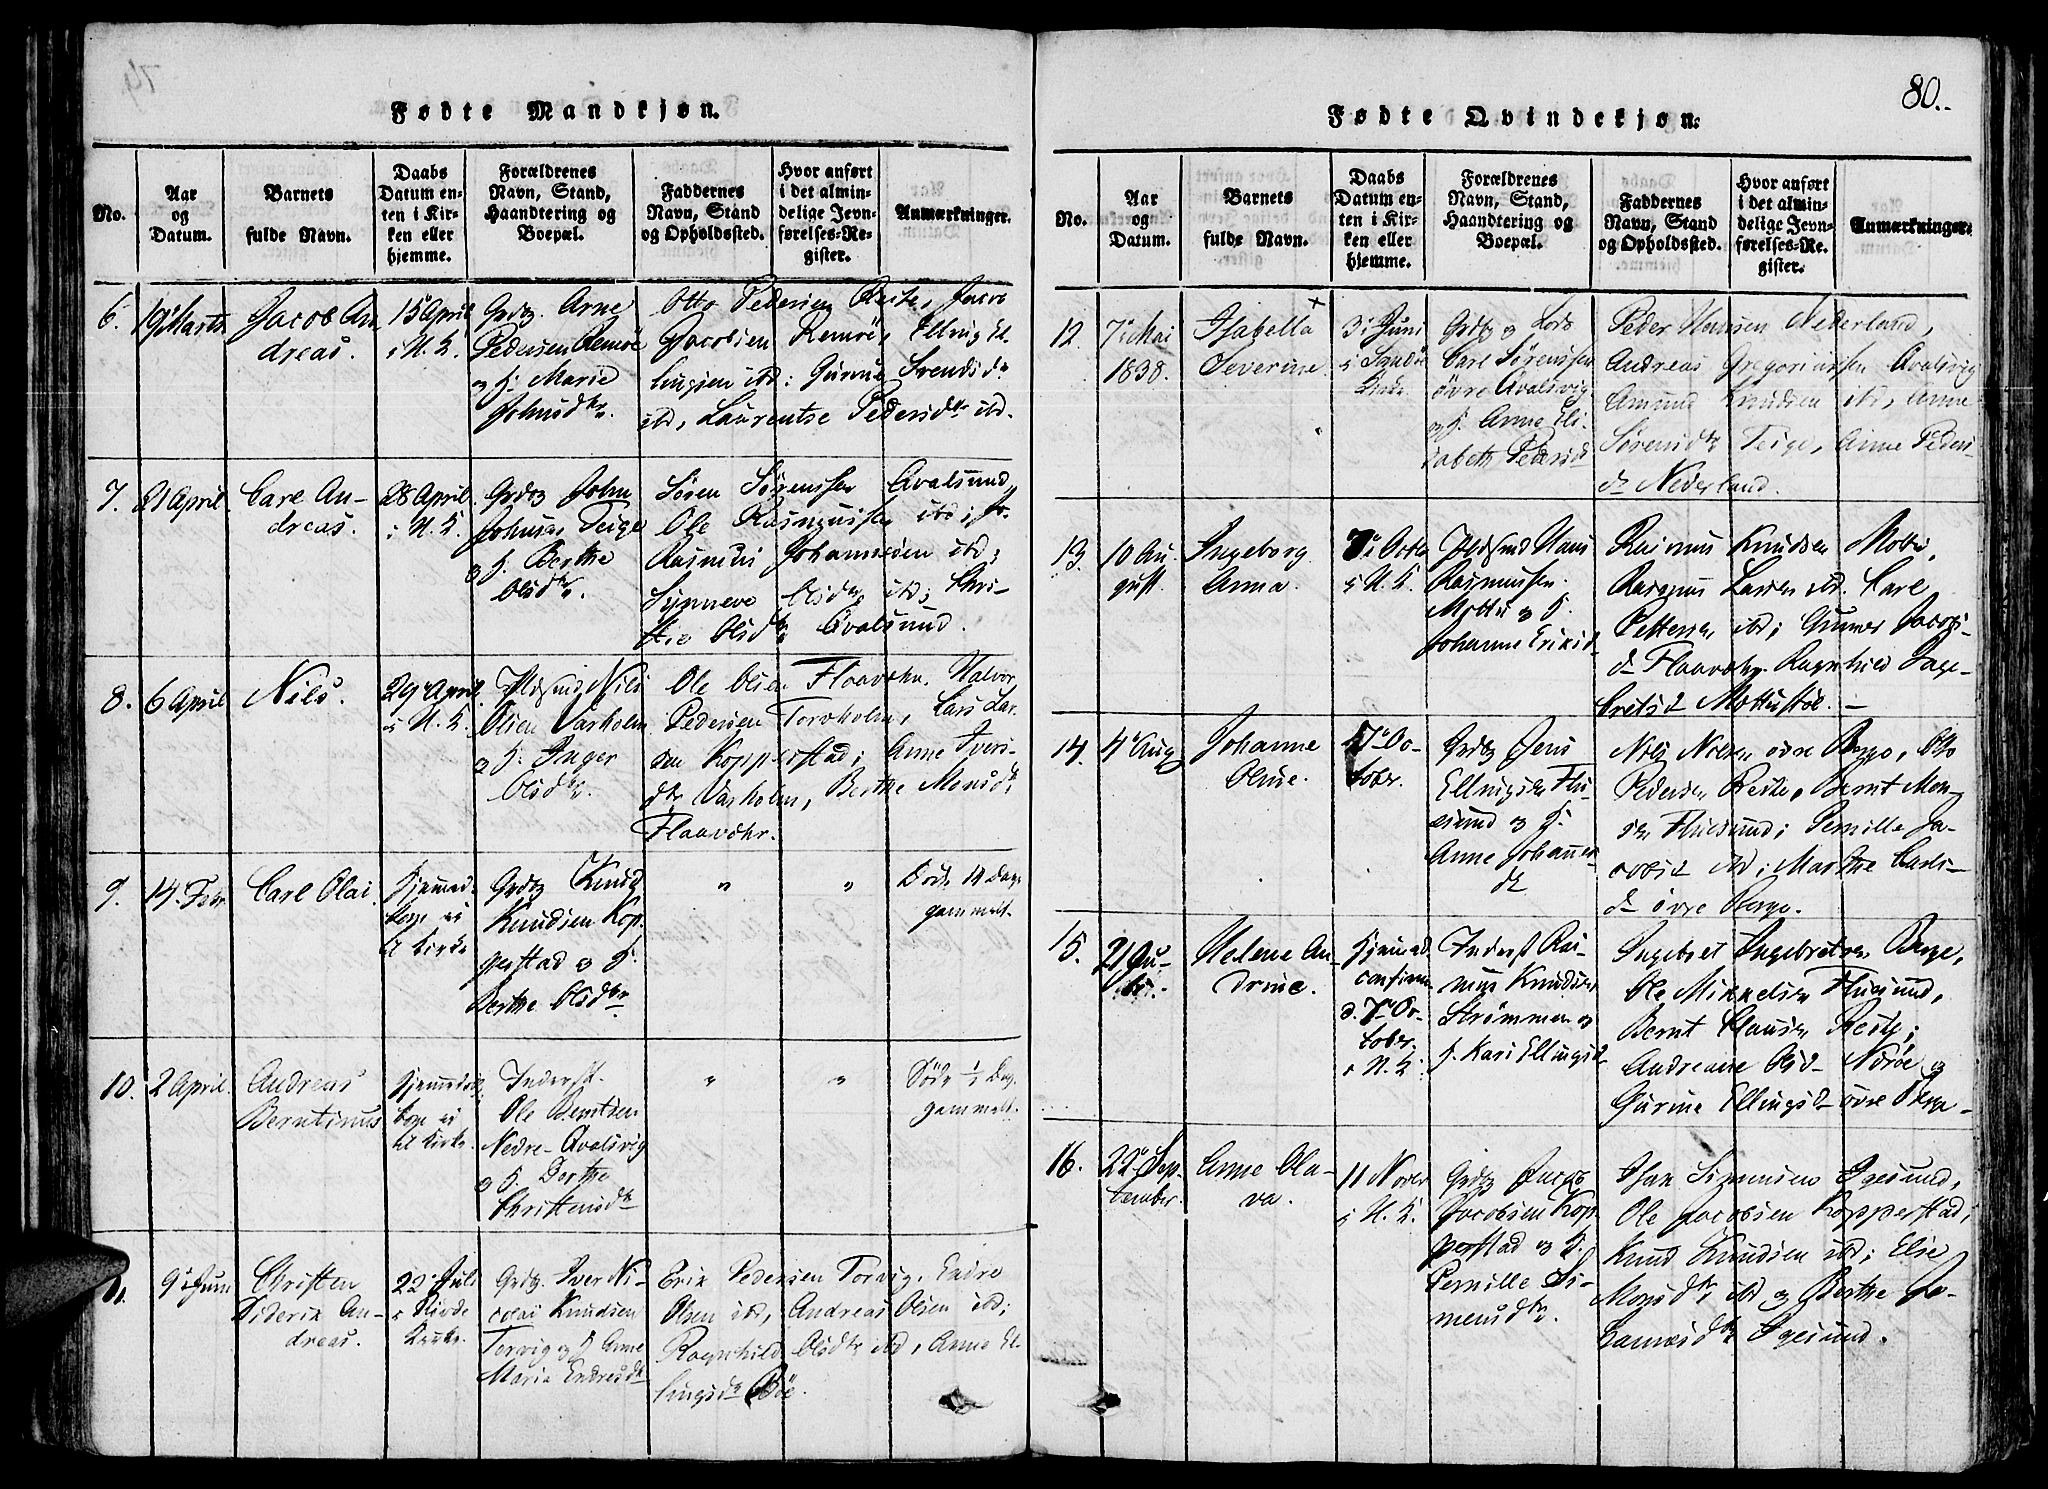 80.
Fødte Mandkjøn.
No.
Aar
og
Datum.
Barnets
fulde Navn.
Daabs
Datum en-
ten i Kir-
ken eller
hjemme.
Forældrenes
Navn, Stand,
Haandtering og
Boepæl.
Faddernes
Navn, Stand
og Opholdssted.
Hvor anført
i det almin-
delige Jevn-
førelses-Re-
gister.
Anmærkninger.
6.
19 Marts
Jacob An
dreas.
15 April
i H. K.
Grdbr. Arne
Pedersen Remøe
og H. Marie
Johnsdtr.
Otto Pedersen Reite, Jacob
Jacobsen Remøe, Elling El-
lingsen ibd; Gurine Svendsdr
ibd, Laurentse Pedersdtr ibd.
7.
21 April
Carl An-
dreas.
28 April
i H. K.
Grdbr John
Johnsen Teige
og H. Berthe
Olsdtr.
Søren Sørensen Qvalsund,
Ole Rasmussen ibd; 
Rasmus Johannesen ibd;
Synneve Olsdtr ibd; Chri-
stie Olsdtr Qvalsund.
8.
6 April
Nils.
29 April
i H. K.
Huusmd Nils
Olsen Varholm
og H. Inger
Olsdtr.
Ole Olsen Flaavær. Halvor
Pedersen Torvholm, Lars Lar-
sen Kopperstad; Anne Ivers-
dtr Varholm, Berthe Monsdtr
Flaavær.
9.
14 Febr
Carl Olai.
Hjemmed.
kom ei
til Kirke
Grdbr Knud
Knudsen Kop-
perstad og H.
Berthe Olsdtr
"
"
Døde 14 Dage
gammelt.
10.
2 April.
Andreas
Berntinus
Hjemmed.
kom ei
til Kirke
Inderst.
Ole Berntsen
Nedre-Qvalsvig
og H. Berthe
Christensdtr
"
"
Døde 1/2 Dag
gammelt.
11.
9 Juni
Christen
Diderik An-
dreas.
22 Juli
i Rovde
Kirke.
Grdbr. Iver Ni-
colai Knudsen
Torvig og H Anne
Marie Endresdtr
Erik Pedersen Torvig. Endre
Olsen ibd, Andreas Olsen ibd;
Ragnhild Olsdtr ibd, Anne El-
lingsdtr Bøe.
Fødte Qvindekjøn.
No.
Aar
og
Datum.
Barnets
fulde Navn.
Daabs
Datum en-
ten i Kir-
ken eller
hjemme.
Forældrenes
Navn, Stand,
Haandtering og
Boepæl.
Faddernes
Navn, Stand
og Opholdssted.
Hvor anført
i det almin-
delige Jevn-
førelses-Re-
gister.
Anmærkninger.
12.
7 Mai
1838.
Isabella +
Severine
3 Juni
i Sandø
Kirke.
Grdbr og Lods
Carl Sørensen
øvre Qvalsvig
og H. Anne Eli-
sabeth Pedersd
Peder Hansen Nederland,
Andreas Gregoriussen Qvalsvig
Amund Knudsen ibd, Anne
Sørensdtr Teige, Anne Peders-
dr Nederland.
13.
10 Au-
gust.
Ingeborg
Anna.
7 Octbr
i H. K.
Huusmd Hans
Rasmussen
Mottu og H.
Johanne Eriksd
Rasmus Knudsen Mottu,
Rasmus Larsen ibd. Carl
Pettersen ibd; Gunner Jacobs-
dr Flaavær. Ragnhild Inge-
bretsd Mottustøl. —
14.
4 Aug
Johanne
Oline.
7 Oc-
tober.
Grdbr Jens
Ellingsen Flu-
esund og H.
Anne Johannes-
dr
Nils Nilsen øvre Berge, Otto
Pedersen Reite, Bernt Mon-
sen Fluesund; Pernille Ja-
cobsd ibd; Marthe Carls-
dr øvre Berge.
15.
21 Ju-
li.
Helene An-
drine.
Hjemmed
confirm.
d. 7 Oc-
tober
i H. K.
Inderst Ras-
mus Knudsen
Strømmen og
H. Kari Ellingsd
Ingebret Ingebretsen Berge,
Ole Mikkelsen Fluesund,
Bernt Clausen Reite;
Andreanne Olsd Nørøe og
Gurine Ellingsd øvre Berge
16.
22 Sep-
tember.
Anne Ola-
va.
11 Novbr
i H. K.
Grdbr Jacob
Jacobsen Kop-
perstad og H.
Pernille Si-
mensdtr.
Isak Simensen Igesund,
Ole Jacobsen Kopperstad,
Knud Knudsen ibd; Else
Monsdtr ibd og Berthe Jo-
hannesdtr Igesund.